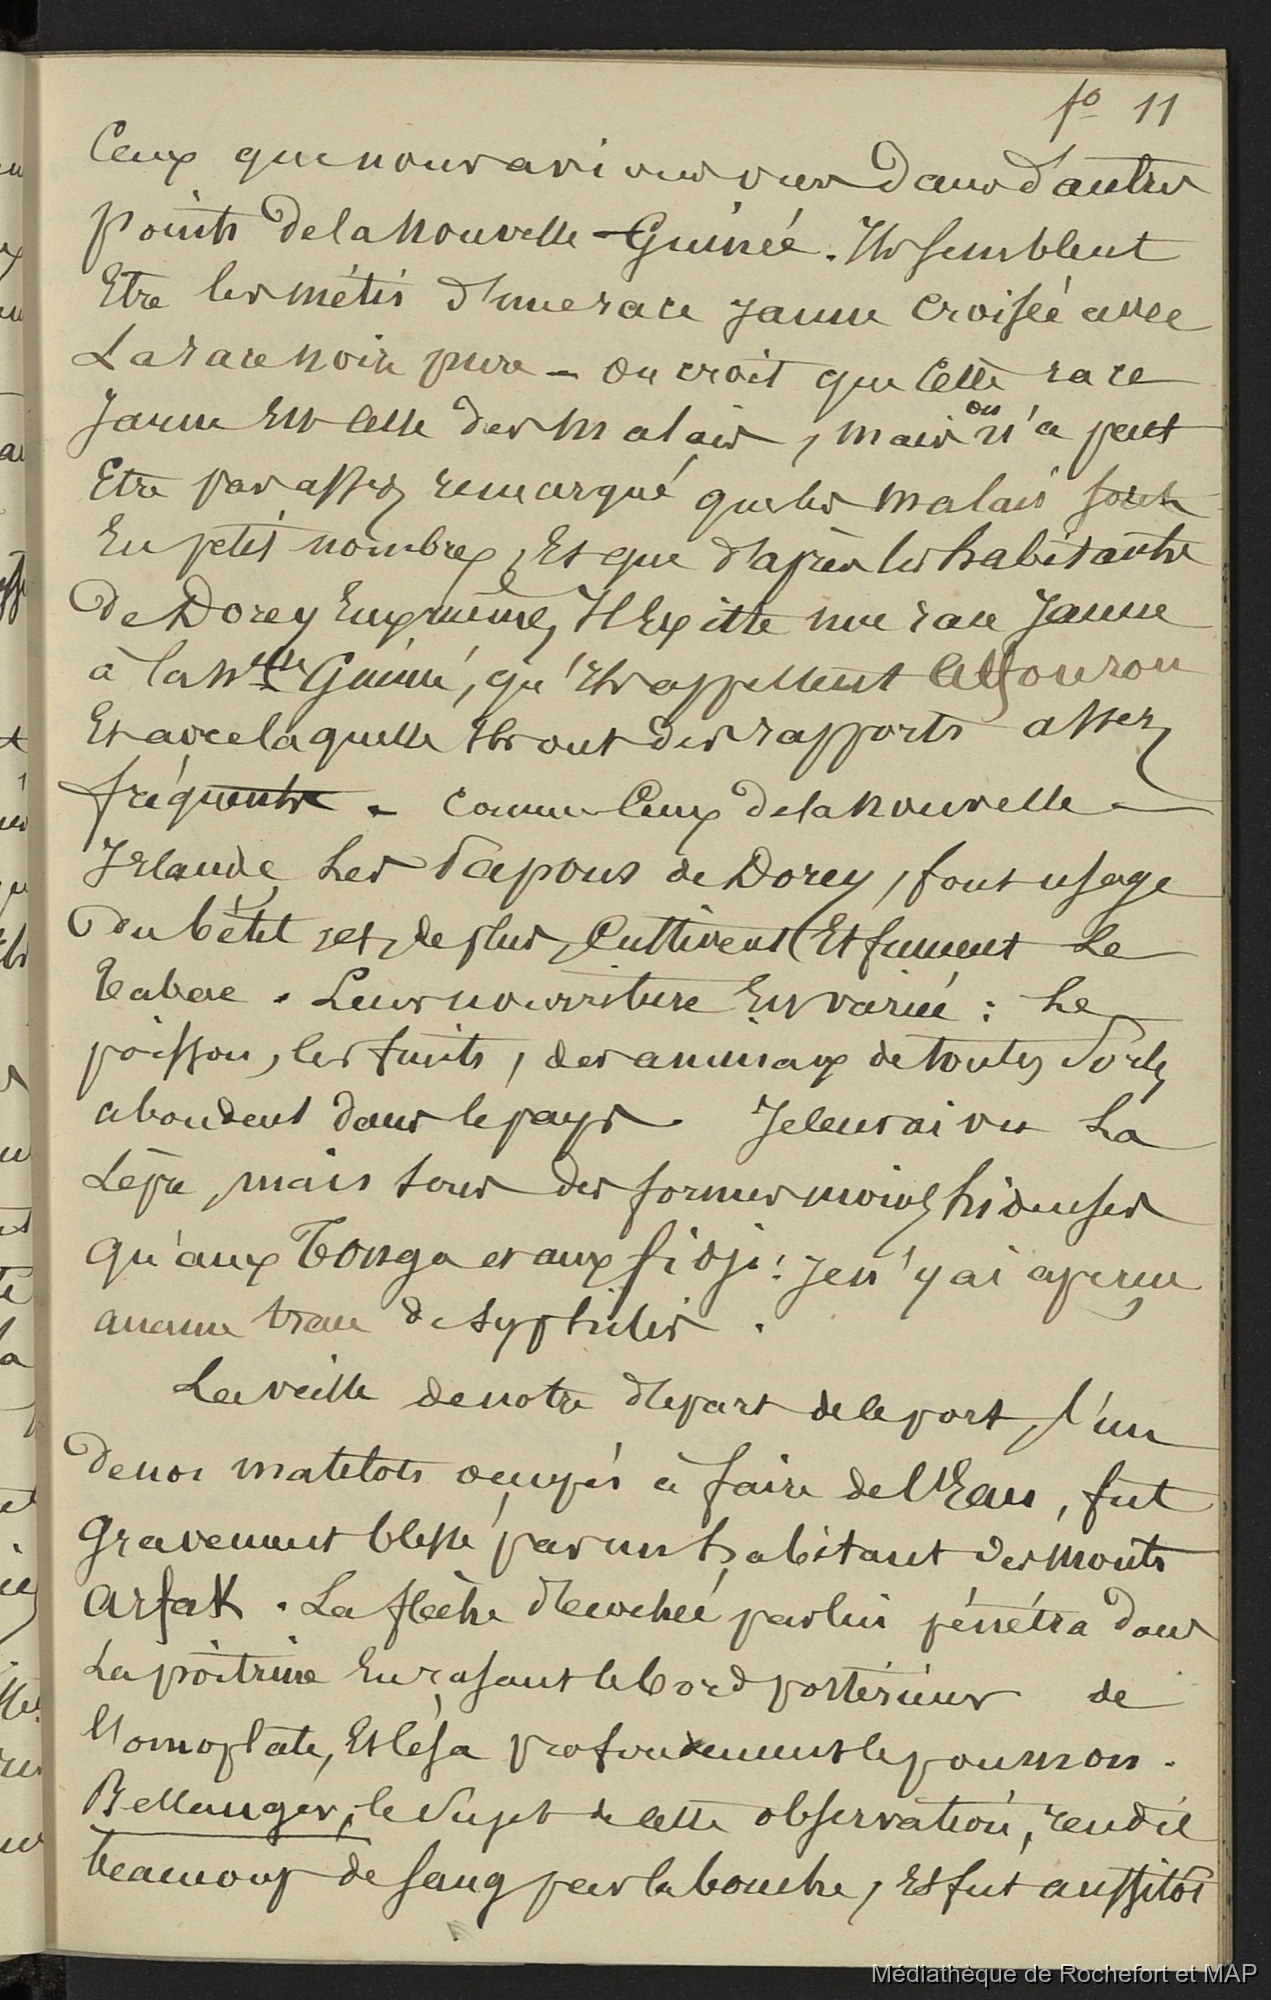 fo 11
Ceux que nous avions vus dans d'autres
points de la Nouvelle-Guinée. Ils semblent
Etre les métis d'une race Jaune croisée avec
La race noire pure - on croit que Cette race
Jaune Est celle des Malais, mais on n'a peut
Etre pas assez remarqué que les Malais sont
En petit nombre, Et que d'après les habitants
de Dorey Eux même, Il Existe une race Jaune
à la Nlle Guinée, qu'Ils appellent Alfourou
Et avec laquelle Ils ont des rapports assez
fréquents. - Comme Ceux de la Nouvelle -
Irlande, Les Papous de Dorey, font usage
du bétel, et, de plus, Cultivent Et fument Le
Tabac. Leur nourriture Est variée : Le
poisson, les fruits, des animaux de toutes Sortes,
abondent dans le pays. Je leur ai vu La
Lèpre, mais sous des formes moins hideuses
qu'aux Tonga et aux fidji : Je n'y ai aperçu
aucune trace de syphilis.
La veille de notre départ de le port, l'un
de nos matelots occupés à faire de l'Eau, fut
Gravement blessé par un habitant des Monts
Arfak. La flèche décochée par lui pénétra dans
La poitrine En rasant le bord postérieur de
l'omoplate, Et lésa profondément le poumon.
Bellanger, le Sujet de cette observation, rendit
beaucoup de sang par la bouche, Et fut aussitôt
Médiathèque de Rochefort et MAP